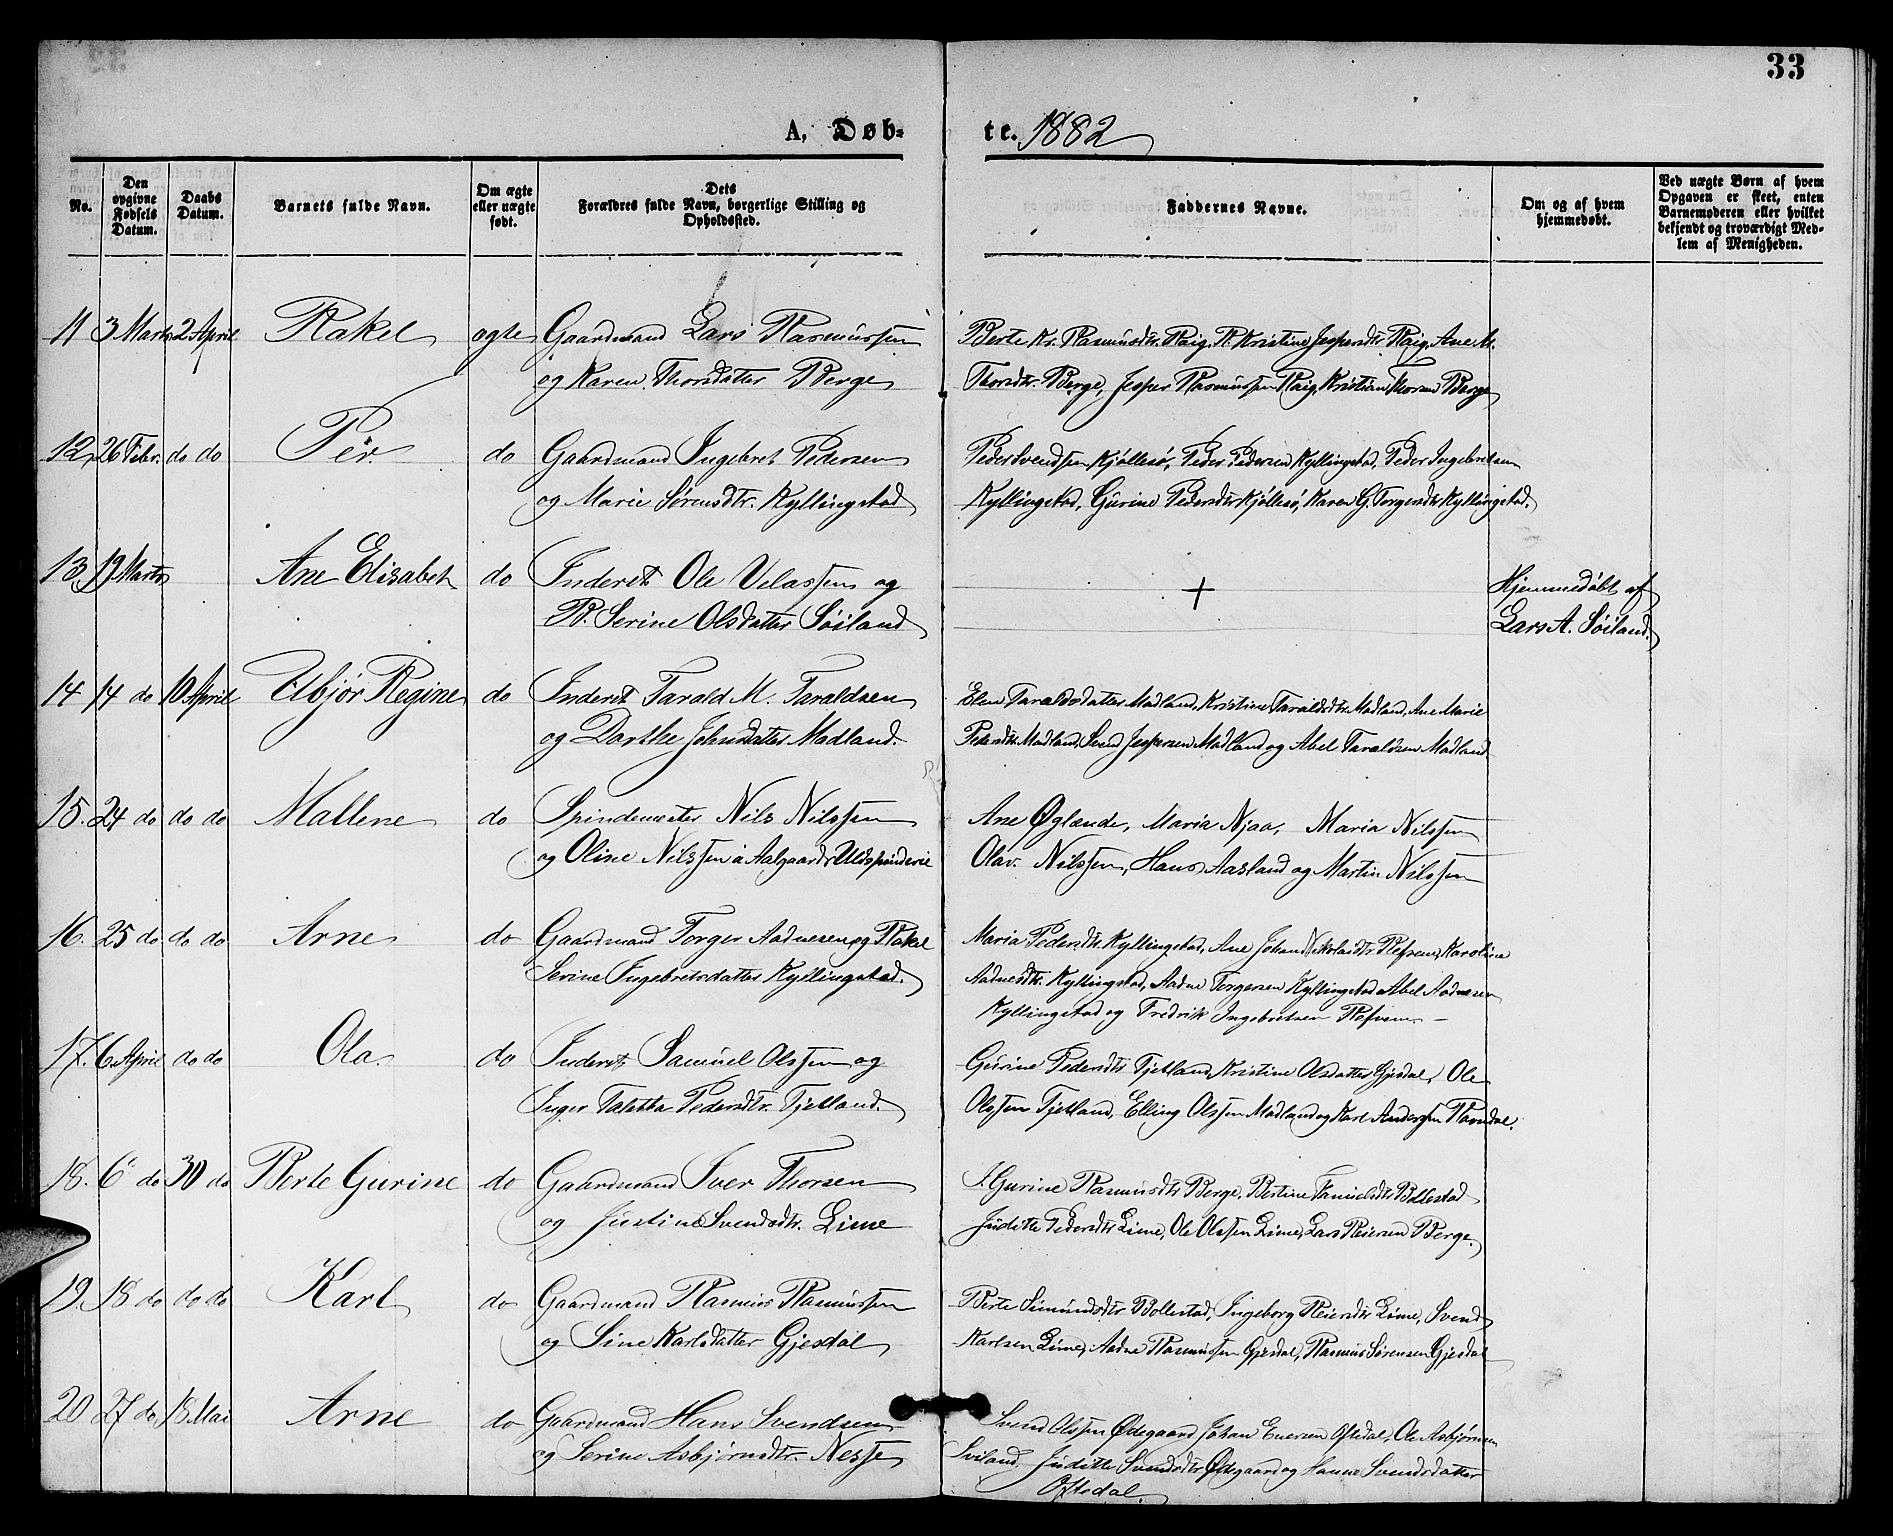 33
A, Døb-
te. 1882
No.
Den opgivne Fødsels Datum.
Daabs Datum.
Barnets fulde Navn.
Om ægte eller uægte født.
Dets Forældres fulde Navn, borgerlige Stilling og Opholdssted.
Faddernes Navne.
Om og af hvem hjemmedøbt.
Ved uægte Børn af hvem Opgaven er skeet, enten Barnemoderen eller hvilket bekjendt og troværdigt Medlem af Menigheden.
11 3 Marts 2 April Rakel ægte Gaardmand Lars Rasmussen
og Karen Thorsdatter Berge
Berte Kr. Rasmusdtr. Raig, R. Kristine Jespersdtr Raig, Ane M.
Thorsdtr. Berge, Jesper Rasmussen Raig, Kristian Thorsen Berge
12. 26 Febr. do do Per. do Gaardmand Ingebret Pedersen
og Marie Sørensdtr. Kyllingstad
Peder Svendsen Kjøllesø, Peder Pedersen Kyllingstad, Peder Ingebretsen
Kyllingstad, Gurine Pedersdtr Kjøllesø, Karen G. Torgersdtr Kyllingstad.
13. 19 Marts Ane Elisabet do Inderst Ole Villassen og
B. Serine Olsdatter Søiland
+
Hjemmedøbt af
Lars A. Søiland.
14 14 do 10 April Asbjør Regine do Inderst Tarald M. Taraldsen
og Dorthe Johnsdatter Madland.
Elen Taraldsdatter Madland, Kristine Taraldsdtr. Madland, Ane Marie
Pedersdtr. Madland, Svend Jespersen Madland og Abel Taraldsen Madland
15. 24 do do do Mallene do Spindemester Nils Nilssen
og Oline Nilssen à Aalgaards Uldspinderie
Ane Øglænde, Maria Njaa, Maria Nilssen
Olav Nilssen, Hans Aasland og Martin Nilssen
16. 25 do do do Arne do Gaardmand Torger Aadnesen og Rakel
Serine Ingebretsdatter Kyllingstad.
Maria Pedersdtr. Kyllingstad, Ane Johanna Nikolaidtr Refsem, Karoline
Aadnesdtr. Kyllingstad, Aadne Torgersen Kyllingstad, Abel Aadnesen
Kyllingstad og Fredrik Ingebretsen Refsem. —
17. 6 April do do Ola. do Inderst Samuel Olssen og
Inger Taletta Pedersdtr. Fjetland.
Gurine Pedersdtr Fjetland, Kristine Olsdatter Gjesdal, Ole
Olssen Fjetland, Elling Olssen Madland og Karl Andersen Ravndal.
18. 6 do 30 do Berte Gurine do Gaardmand Iver Thorsen
og Justine Svendsdtr. Lime
I. Gurine Rasmusdtr Berge, Bertine Samuelsdtr Bollestad
Juditte Pedersdtr Lime, Ole Olssen Lime, Lars Reiersen Berge.
19. 18 do do do Karl do Gaardmand Rasmus Rasmussen
og Sine Karlsdatter Gjesdal
Berte Simundsdtr Bollestad, Ingeborg Reiersdtr Lime, Svend
Karlsen Lime, Aadne Rasmussen Gjesdal, Rasmus Sørensen Gjesdal
20 27 do 18 Mai Arne do Gaardmand Hans Svendsen
og Serine Asbjørnsdtr. Nesse
Svend Olssen Ødegaard, Johan Enersen Oftedal, Ole Asbjørnsen
Sviland, Juditte Svendsdtr Ødegaard og Hanna Svendsdatter
Oftedal.